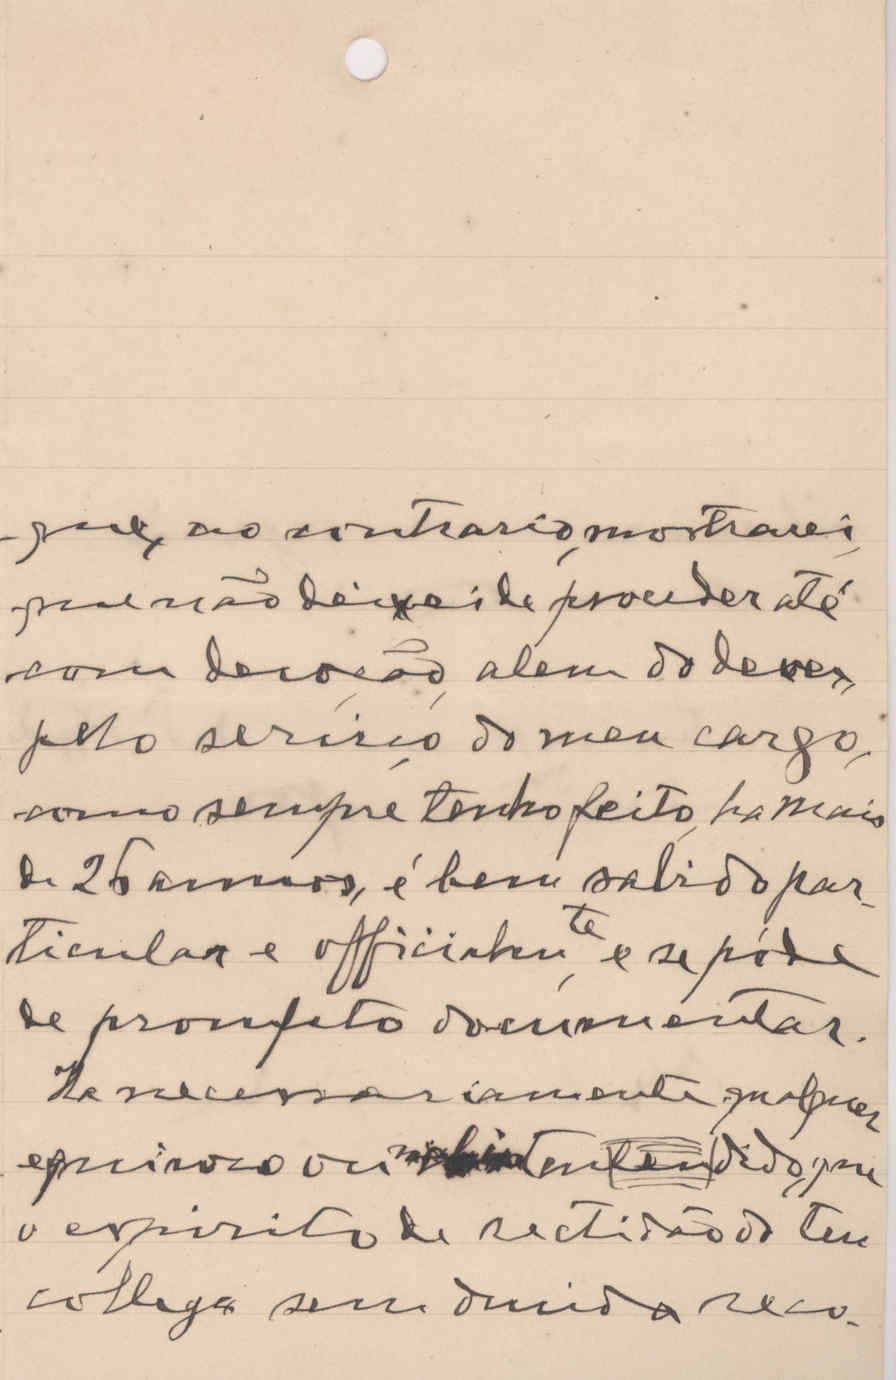 que, ao contrario, mostrarei,
que não deixei de proceder até
com devoção, alem do dever,
pelo serviço do meu cargo,
como sempre tenho feito, ha mais
de 26 annos, é bem sabido par-
ticular e officialmte, e se póde
de prompto documentar.
Ha necessariamente qualquer
equivoco ou tendido, que
o espirito de rectidão do teu
collega sem duvida reco-